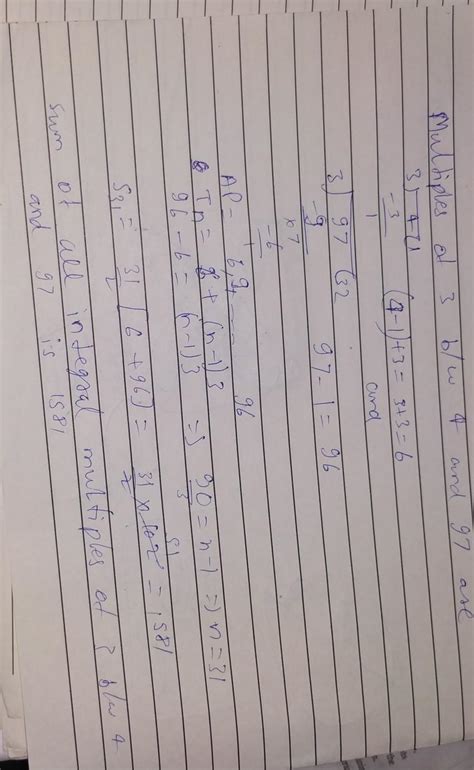 Multiples of 3 b/w 4 and 97 are
3) 4 (1
-3 (4-1)+3 = 3+3 = 6
1 and
3) 97 (32 97-1 = 96
-9
x7
-6
1
AP - 6, 9, ---- 96
Tn = 6 + (n-1)3
96 - 6 = (n-1)3 => 90/3 = n-1 => n = 31
S31 = 31/2 [6 + 96] = 31/2 x 102 51 = 1581
sum of all integral multiples of 3 b/w 4
and 97 is 1581